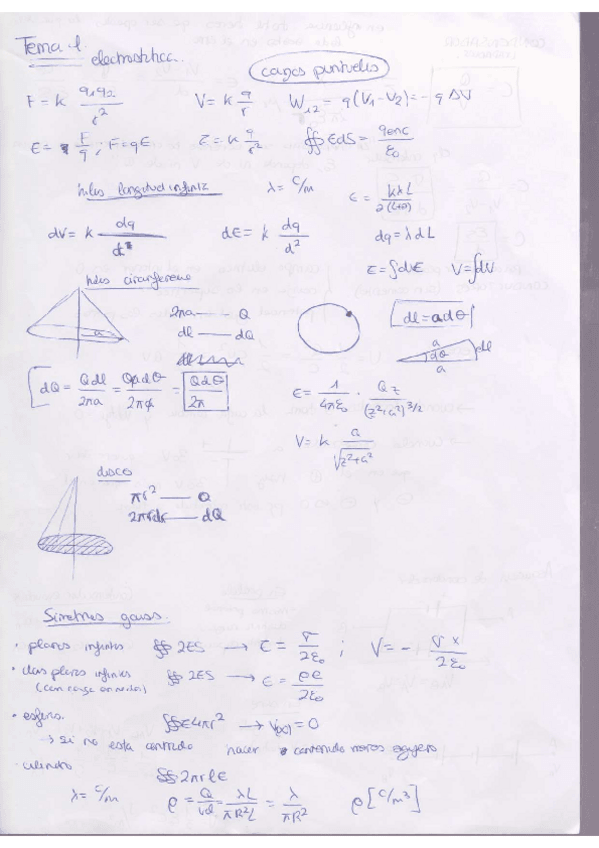 Tema 1. electrostática.
cargas puntuales
F = k q₁q₂/r²    V = k q/r    W₁₂ = q(V₁-V₂) = -q ΔV
E = F/q ; F = qE    E = k q/r²    ∯ E dS = qenc/ε₀
hilos longitud infinita    λ = C/m    E = kλL/
dV = k dq/d    dE = k dq/d²    dq = λ dL
E = ∫dE    V = ∫dV
hilos circunferencia
a
2πa —— Q
dl —— dQ
dl = a dθ
a dθ dl
a
dQ = Q dl/2πa = Q a dθ/2πa = Q dθ/2π
E = 1/4πε₀ · Qz/(z²+a²)^3/2
V = k Q/√z²+a²
discos
πr² —— Q
2πrdr —— dQ
Simetrías gauss.
· planos infinitos    ∯ 2ES → E = σ/2ε₀ ; V = - σx/2ε₀
· dos planos infinitos    ∯ 2ES → E = ρe/2ε₀
(con carga en medio)
· esfera.    ∯ E4πr² → V(∞) = 0
→ si no esta centrado hacer contenido menos agujero
· cilindro    ∯ 2πrlE
λ = C/m    ρ = Q/vol = λL/πR²L = λ/πR²    ρ [C/m³]